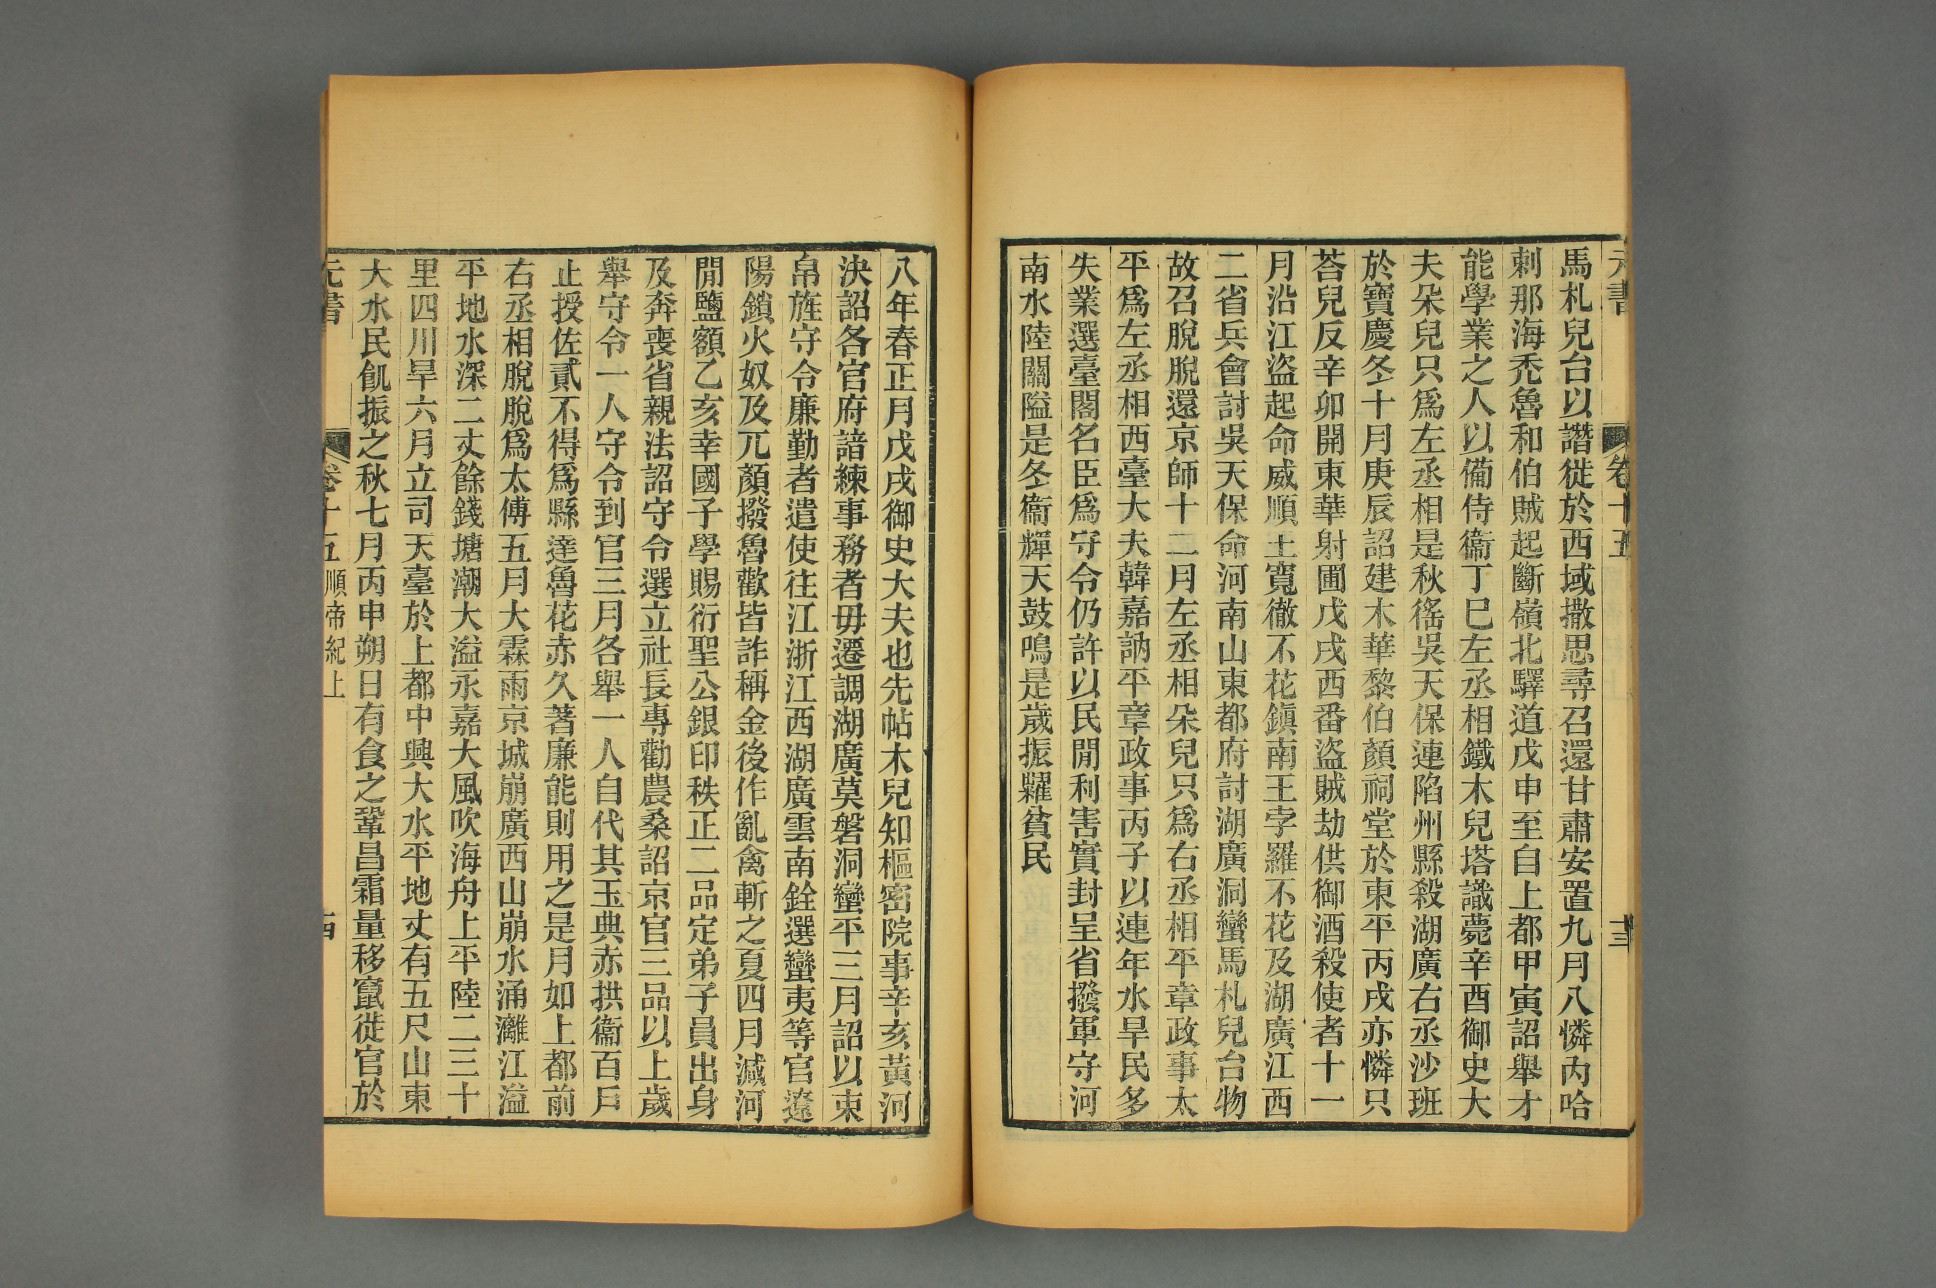 元書
卷十五
十三
馬札兒台以譖徙於西域撒思尋召還甘肅安置九月八憐內哈
剌那海禿魯和伯賊起斷嶺北驛道戊申至自上都甲寅詔舉才
能學業之人以備侍衞丁巳左丞相鐵木兒塔識薨辛酉御史大
夫朵兒只爲左丞相是秋徭吳天保連陷州縣殺湖廣右丞沙班
於寶慶冬十月庚辰詔建木華黎伯顏祠堂於東平丙戌亦憐只
荅兒反辛卯開東華射圃戊戌西番盜賊劫供御酒殺使者十一
月沿江盜起命威順王寬徹不花鎭南王孛羅不花及湖廣江西
二省兵會討吳天保命河南山東都府討湖廣洞蠻馬札兒台物
故召脫脫還京師十二月左丞相朵兒只爲右丞相平章政事太
平爲左丞相西臺大夫韓嘉訥平章政事丙子以連年水旱民多
失業選臺閣名臣爲守令仍許以民閒利害實封呈省撥軍守河
南水陸關隘是冬衞輝天鼓鳴是歲振糶貧民
八年春正月戊戌御史大夫也先帖木兒知樞密院事辛亥黃河
決詔各官府諳練事務者毋遷調湖廣莫磐洞蠻平三月詔以束
帛旌守令廉勤者遣使往江浙江西湖廣雲南銓選蠻夷等官遼
陽鎖火奴及兀顏撥魯歡皆詐稱金後作亂禽斬之夏四月減河
閒鹽額乙亥幸國子學賜衍聖公銀印秩正二品定弟子員出身
及奔喪省親法詔守令選立社長專勸農桑詔京官三品以上歲
舉守令一人守令到官三月各舉一人自代其玉典赤拱衞百戶
止授佐貳不得爲縣達魯花赤久著廉能則用之是月如上都前
右丞相脫脫爲太傅五月大霖雨京城崩廣西山崩水涌灕江溢
平地水深二丈餘錢塘潮大溢永嘉大風吹海舟上平陸二三十
里四川旱六月立司天臺於上都中興大水平地丈有五尺山東
大水民飢振之秋七月丙申朔日有食之鞏昌霜量移竄徙官於
元書
卷十五 順帝紀上
十四